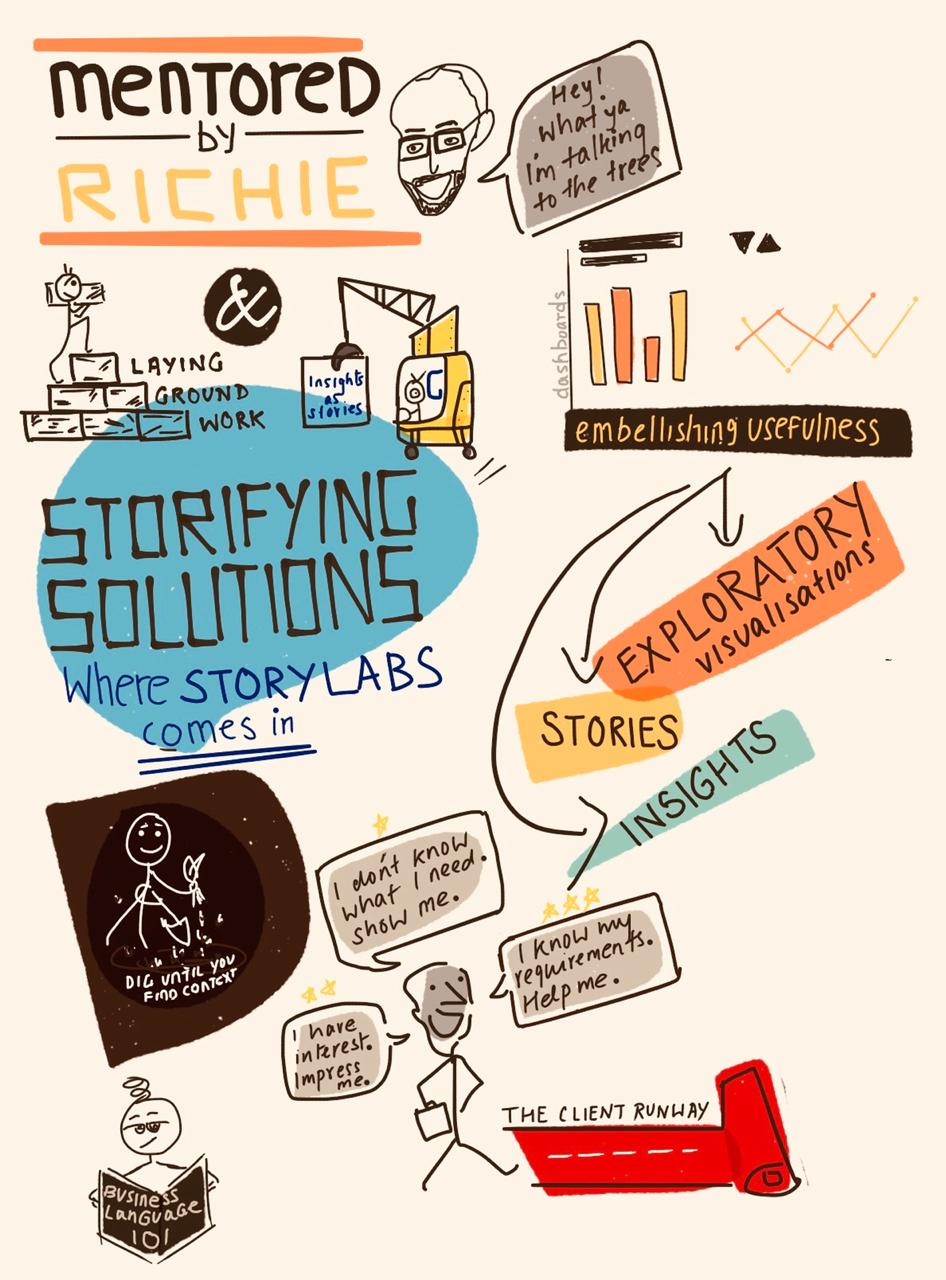 mentored
by
RICHIE
Hey!
what ya
I'm talking
to the trees
LAYING
GROUND
WORK
&
Insights
as
stories
G
dashboards
embellishing usefulness
STORIFYING
SOLUTIONS
Where STORYLABS
comes in
EXPLORATORY
visualisations
STORIES
INSIGHTS
DIG UNTIL YOU
FIND CONTEXT
I don't know
what I need.
show me.
I know my
requirements.
Help me.
I have
interest.
Impress
me.
THE CLIENT RUNWAY
BUSINESS
LANGUAGE
101